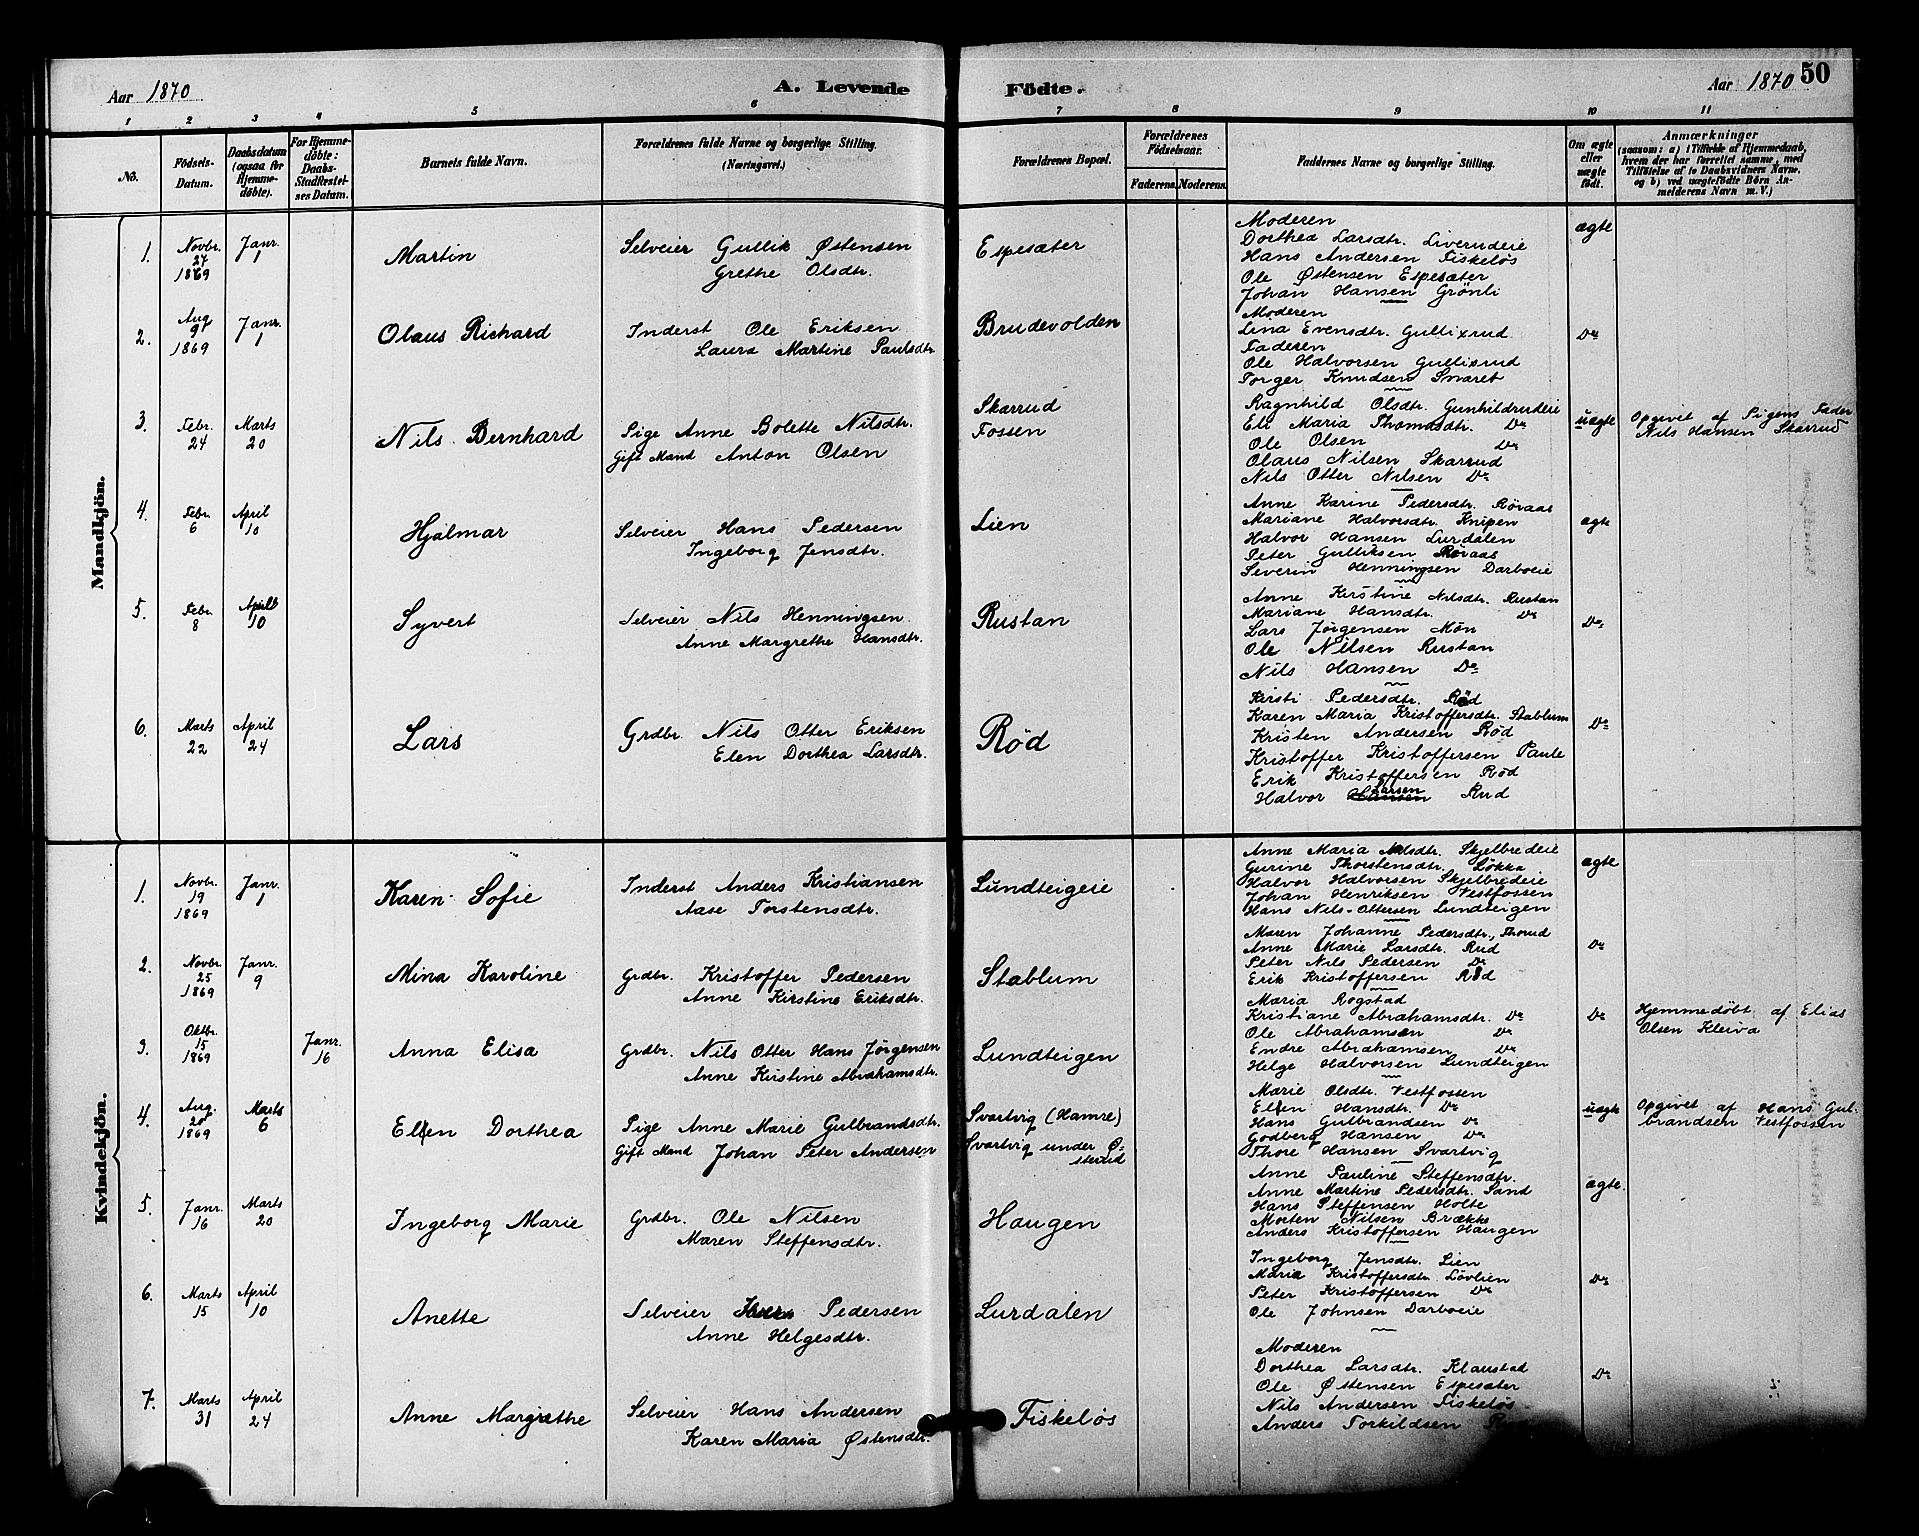 Aar 1870
A. Levende Födte.
Aar 1870 50
1 2 3 4 5 6 7 8 9 10 11
No.
Födsels-Datum.
Daabsdatum (ogsaa for Hjemme-döbte).
For Hjemme-döbte: Daabs-Stadfæstel-ses Datum.
Barnets fulde Navn.
Forældrenes fulde Navne og borgerlige Stilling.
(Næringsvei.)
Forældrenes Bopæl.
Forældrenes Födselsaar.
Faderens. Moderens.
Faddernes Navne og borgerlige Stilling.
Om ægte eller uægte födt.
Anmærkninger
(saasom: a) i Tilfælde af Hjemmedaab,
hvem der har forrettet samme, med
Tilföielse af to Daabsvidners Navne,
og b) ved uægtefödte Börn An-
melderens Navn m. V.)
Mandkjön.
1. Novbr. 27 1869 Janr. 1
Martin
Selveier Gullik Østensen
Grethe Olsdtr.
Espesæter
Moderen
Dorthea Larsdtr. Liverudeie
Hans Andersen Fiskeløs
Ole Østensen Espesæter
Johan Hansen Grönli
ægte
2. Aug 9 1869 Janr. 1
Olaus Richard
Inderst Ole Eriksen
Laura Martine Paulsdtr.
Brudevolden
Moderen
Lina Evensdtr. Gullixrud
Faderen
Ole Halvorsen Gullixrud
Torger Knudsen Smaret
Do
3. Febr. 24 Marts 20
Nils Bernhard
Pige Anne Bolette Nilsdtr.
Gift Mand Anton Olsen
Skarrud
Fossen
Ragnhild Olsdtr. Gunhildrudeie
Eli Maria Thomasdtr. Do
Ole Olsen Do
Olaus Nilsen Skarrud
Nils Otter Nilsen Do
uægte
Opgivet af Pigens Fader
Nils Hansen Skarrud
4. Febr. 6 April 10
Hjalmar
Selveier Hans Pedersen
Ingeborg Jensdtr.
Lien
Anne Karine Pedersdtr. Røvaas
Mariane Halvorsdtr. Knipen
Halvor Hansen Lurdalen
Peter Gulliksen Røvaas
Severin Henningsen Darboeie
ægte
5. Febr. 8 April 10
Syvert
Selveier Nils Henningsen
Anne Margrethe Hansdtr.
Rustan
Anne Kirstine Nilsdtr. Rustan
Mariane Hansdtr. Do
Lars Jørgensen Møn
Ole Nilsen Rustan
Nils Hansen Do
Do
6. Marts 22 April 24
Lars
Grdbr. Nils Otter Eriksen
Elen Dorthea Larsdtr.
Rød
Kirsti Pedersdtr. Rød
Karen Maria Kristoffersdtr. Stablum
Kristen Andersen Rød
Kristoffer Kristoffersen Paule
Erik Kristoffersen Rød
Halvor Hansen Larsen Rud
Do
Kvindekjön.
1. Novbr. 19 1869 Janr. 1
Karen Sofie
Inderst Anders Kristiansen
Aase Torstensdtr.
Lundteigeie
Anne Maria Nilsdtr. Skjelbredeie
Gurine Thorstensdtr. Løkka
Halvor Halvorsen Skjelbredeie
Johan Henriksen Vestfossen
Hans Nils-Ottersen Lundteigen
ægte
2. Novbr. 25 1869 Janr. 9
Mina Karoline
Grdbr. Kristoffer Pedersen
Anne Kirstine Eriksdtr.
Stablum
Maren Johanne Pedersdtr., Thorud
Anne Marie Larsdtr. Rud
Peter Nils Pedersen Do
Erik Kristoffersen Rød
Do
3. Oktbr. 15 1869 Janr. 16
Anna Elisa
Grdbr. Nils Otter Hans Jörgensen
Anne Kirstine Abrahamsdtr.
Lundteigen
Maria Rogstad
Kristiane Abrahamsdtr. Do
Ole Abrahamsen Do
Endre Abrahamsen Do
Helge Halvorsen Lundteigen
Do
Hjemmedøbt af Elias
Olsen Kleiva
4. Aug. 20 1869 Marts 6
Ellen Dorthea
Pige Anne Marie Gulbrandsdtr.
Gift Mand Johan Peter Andersen
Svartvig (Hamre)
Svartvig under Ø-
sterud
Marie Olsdtr. Vestfossen
Ellen Hansdtr. Do
Hans Gulbrandsen Do
Godberg Hansen Do
Thore Hansen Svartvig
uægte
Opgivet af Hans Gul-
brandsen Vestfossen
5. Janr. 16 Marts 20
Ingeborg Marie
Grdbr. Ole Nilsen
Maren Steffensdtr.
Haugen
Anne Pauline Steffensdtr.
Anne Martine Pedersdtr. Sand
Hans Steffensen Holte
Morten Nilsen Brække
Anders Kristoffersen Haugen
ægte.
6. Marts 15 April 10
Anette
Selveier Pedersen
Anne Helgesdtr.
Lurdalen
Ingeborg Jensdtr. Lien
Maria Kristoffersdtr. Løvlien
Peter Kristoffersen Do
Ole Johnsen Darboeie
Do
7. Marts 31 April 24
Anne Margrethe
Selveier Hans Andersen
Karen Maria Østensdtr.
Fiskeløs
Moderen
Dorthea Larsdtr. Klaustad
Ole Østensen Espesæter
Nils Andersen Fiskeløs
Anders Torkildsen
Do